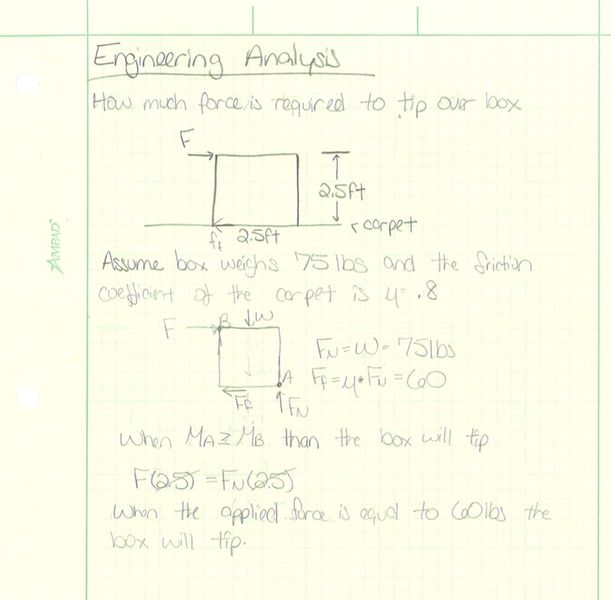 Engineering Analysis
How much force is required to tip over box
F
2.5ft
← carpet
ff 2.5ft
AMPAD
Assume box weighs 75lbs and the friction
coefficient of the carpet is μ= .8
F B ↓W
FN=W=75lbs
A Ff=μ•FN=60
Ff ↑FN
When MA≥MB than the box will tip
F(2.5) = FN(2.5)
When the applied force is equal to 60lbs the
box will tip.